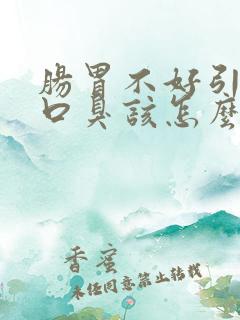 腸胃不好引
口臭該怎麼
香蜜
未经同意禁止转载